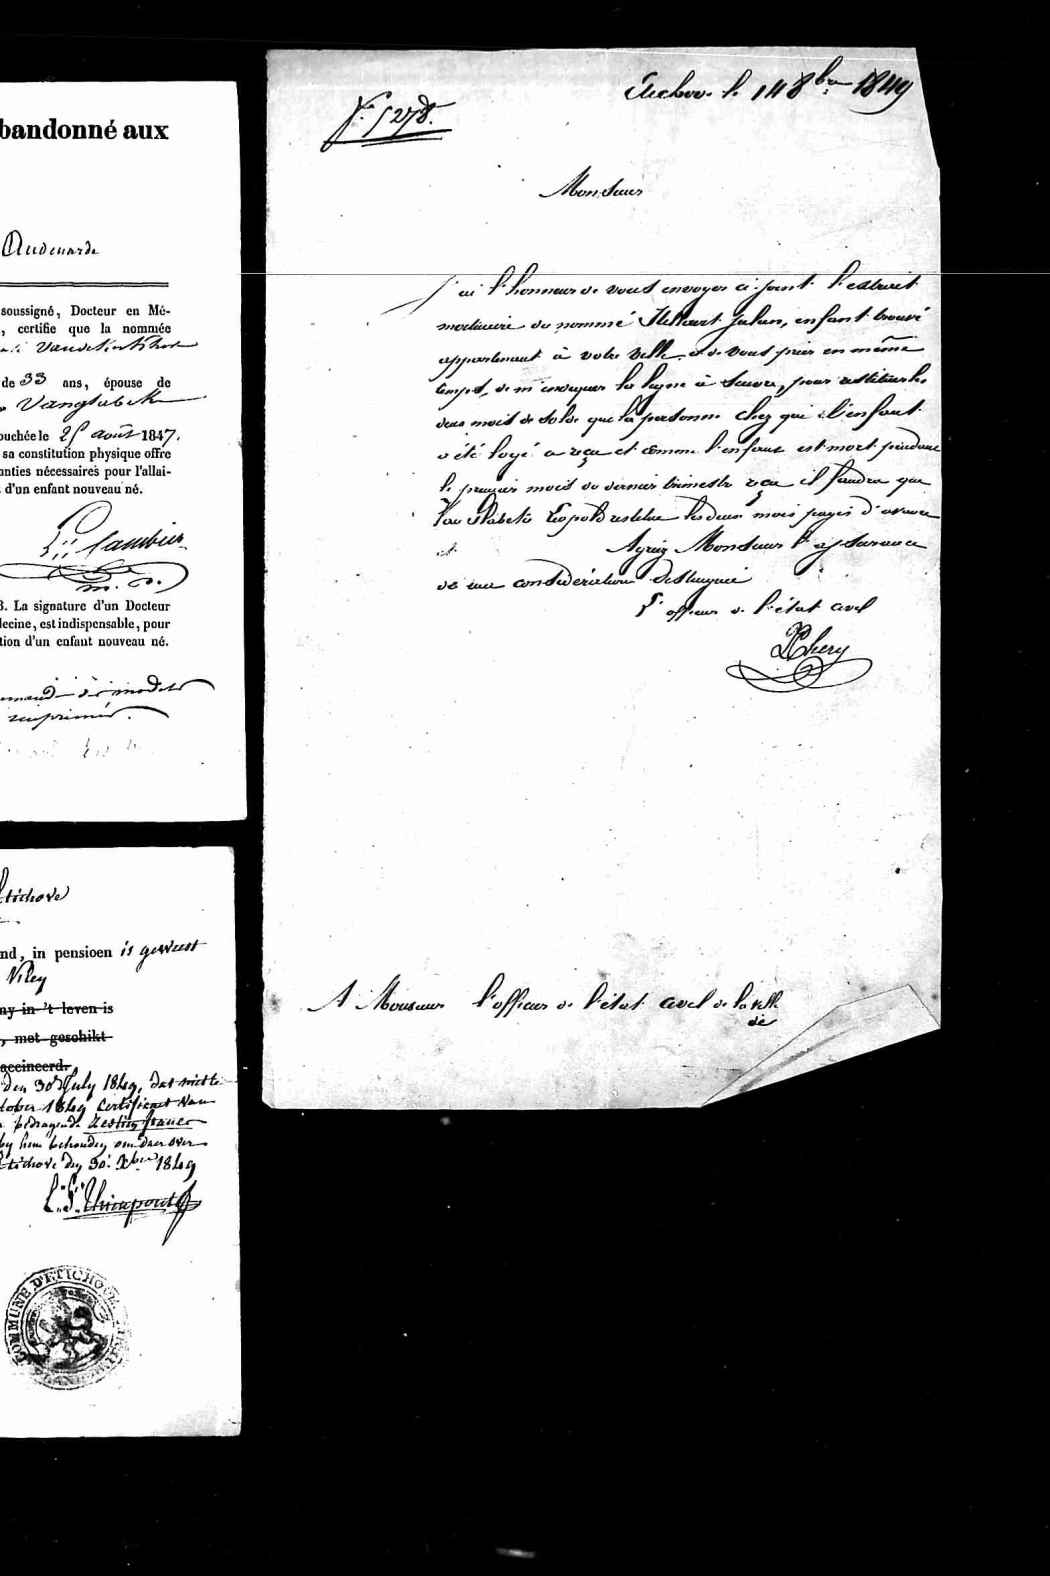 bandonné aux
Audenarde
soussigné, Docteur en Mé-
, certifie que la nommée
de 33 ans, épouse de
ouchée le 25 août 1847.
sa constitution physique offre
anties nécessaires pour l'allai-
d'un enfant nouveau né.
m. D.
3. La signature d'un Docteur
decine, est indispensable, pour
tion d'un enfant nouveau né.
imprimés.
Etichove
nd, in pensioen is geweest
ny in 't leven is
, met geschikt
accineerd.
den 30 July 1849, dat
tober 1849 Certificaet van
by hem behouden om daer over
Etichove den 30 Xbre 1849
COMMUNE D'ETICHOVE
Etichove le 14 8bre 1849
N° 5278.
Monsieur
J'ai l'honneur de vous envoyer ci joint l'extrait
mortuaire du nommé Julien, enfant trouvé
appartenant à votre ville et de vous prier en même
temps, de m'indiquer la ligne à suivre, pour restituer les
deux mois de solde que la personne chez qui l'enfant
a été logé a reçu et comme l'enfant est mort pendant
le premier mois du dernier trimestre reçu il faudra que
Léopold restitue les deux mois payés d'avance
Agréez Monsieur l'assurance
de ma considération distinguée
L'officier de l'état civil
A Monsieur l'officier de l'état civil de la ville
de